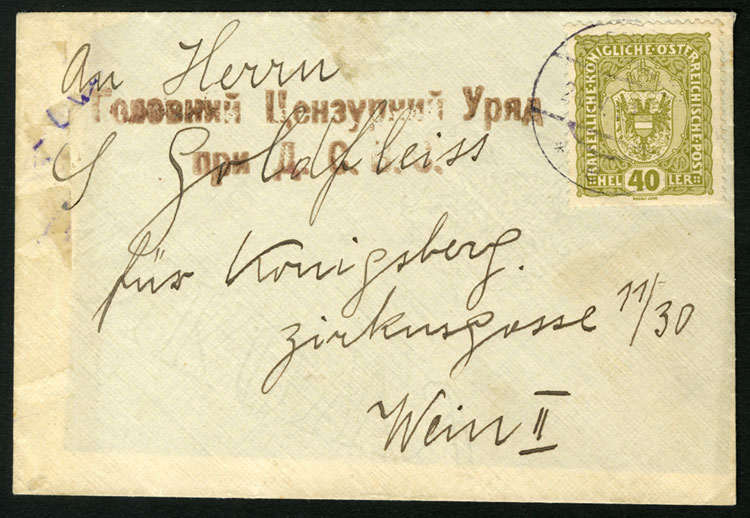 An Herrn
Головний Цензурний Уряд
при Д. С. В. С.
S Goldfleiss
für Königsberg.
Zirkusgasse 11/30
Wein II
KAISERLICHE KÖNIGLICHE ÖSTERREICHISCHE POST
HELLER
40